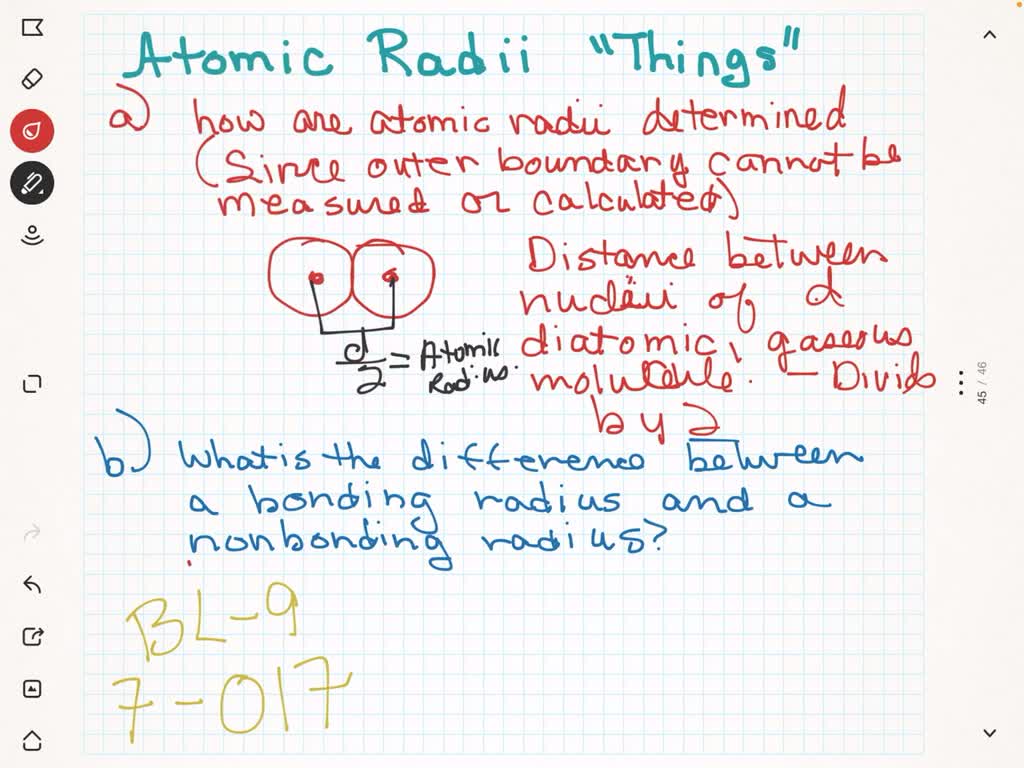 Atomic Radii "Things"
a) how are atomic radii determined
(Since outer boundary cannot be
measured or calculated)
Distance between
nucleii of a
diatomic, gaseous
molecule. - Divide
by 2
d/2 = Atomic
Radius.
b) What is the difference between
a bonding radius and a
nonbonding radius?
BL-9
7-017
45 / 46